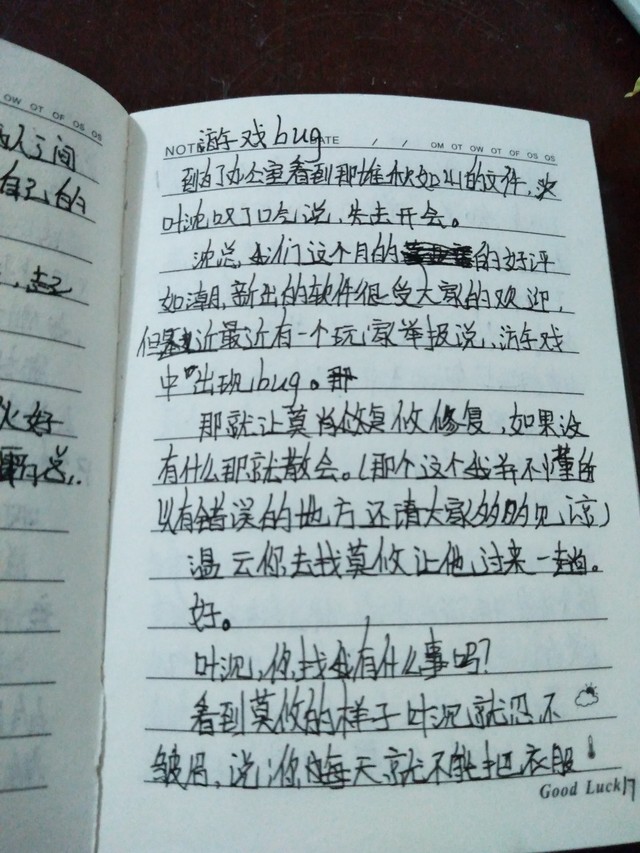 OW OT OF OS OS
人了间
自己的
,赶
火好
总,.
NOT DATE / / OM OT OW OT OF OS OS
游戏bug
到了办公室看到那堆犹如山的文件,
叶沈叹了口气说,先去开会。
沈总,我们这个月的的好评
如潮,新出的软件很受大家的欢迎,
但是最近有一个玩家举报说,游戏
中"出现bug。那
那就让莫肖攸复攸修复,如果没
有什么那就散会。(那个这个我并不懂所
以有错误的地方还请大家多多见谅)
温云你去找莫攸让他过来一趟。
好。
叶沉,你找我有什么事吗?
看到莫攸的样子叶沉就忍不
皱眉,说:你每天就不能把衣服
Good Luck 17